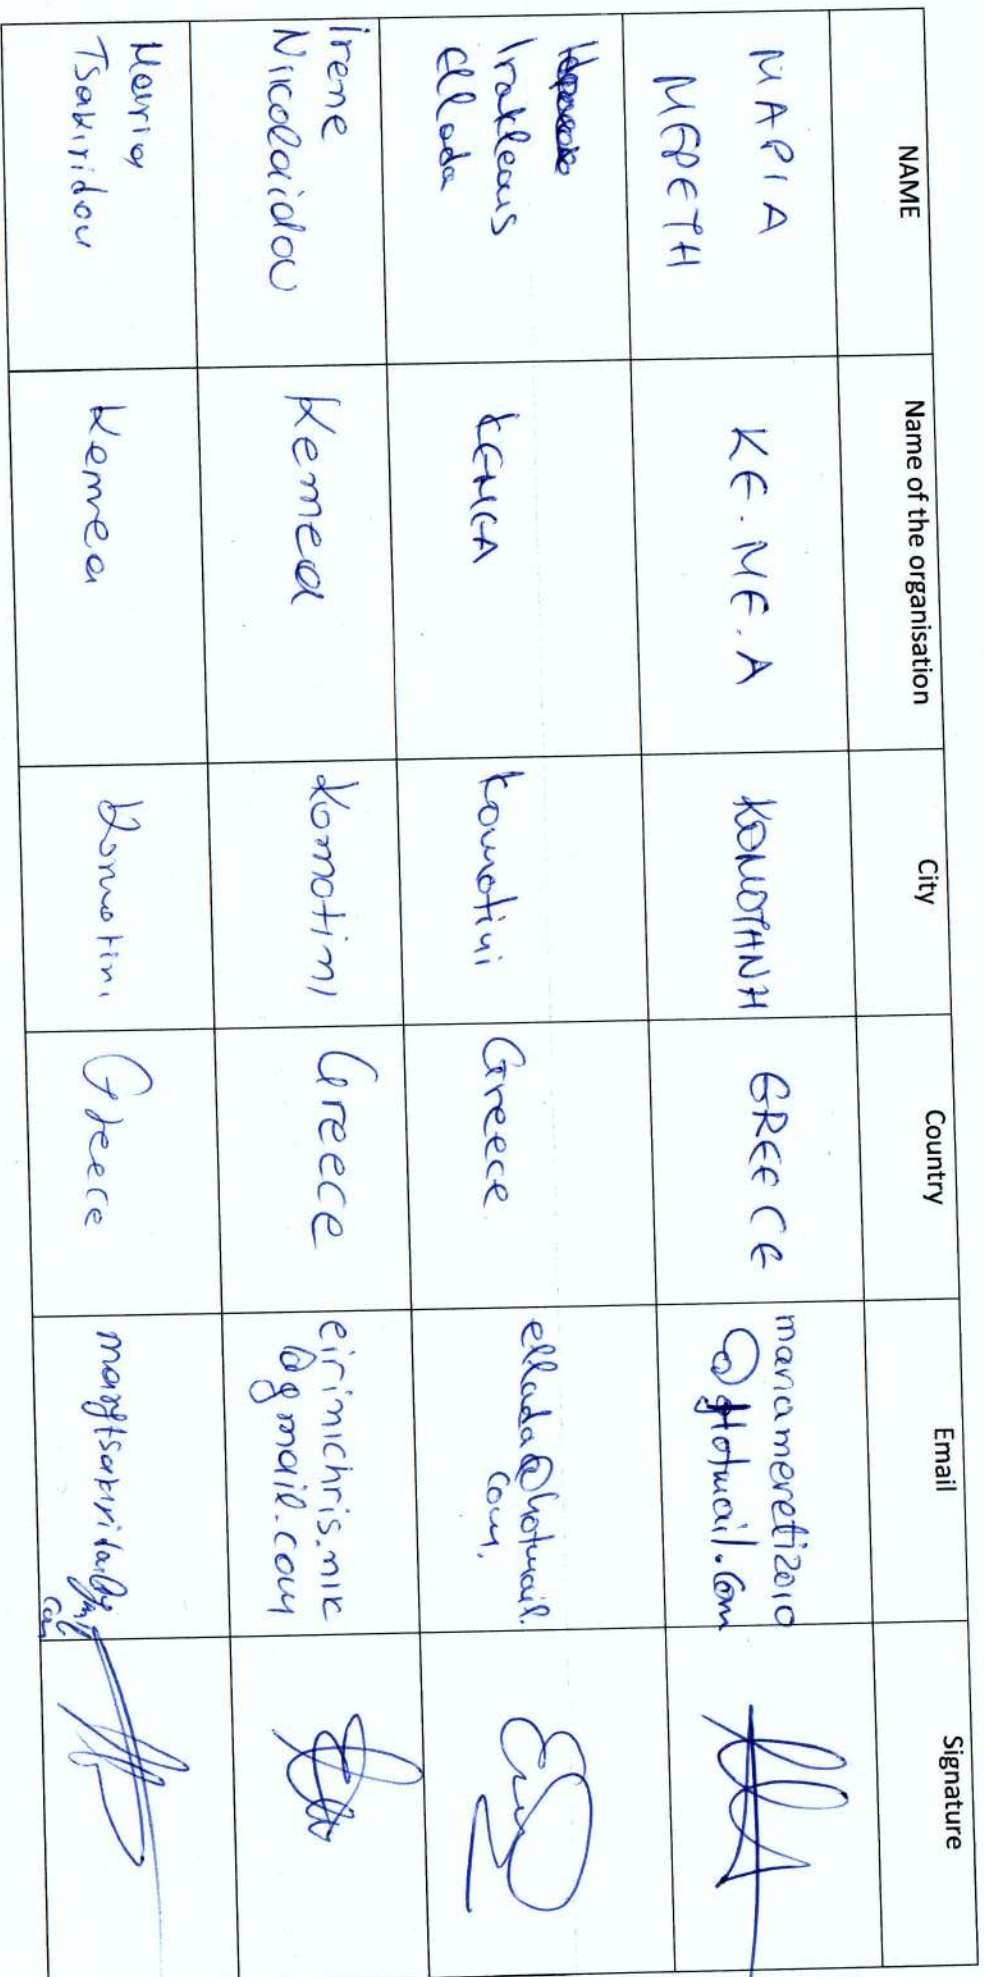 NAME Name of the organisation City Country Email Signature
ΜΑΡΙΑ
ΜΕΡΕΤΗ
ΚΕ.ΜΕ.Α
ΚΟΜΟΤΗΝΗ
GREECE
mariamereti2010
@Hotmail.com
Irakleous
Ellada
ΚΕΜΕΑ
Komotini
Greece
ellada@hotmail.
com.
Irene
Nikolaidou
Kemea
Komotini
Greece
eirinichris.nik
@gmail.com
Maria
Tsakiridou
Kemea
Komotini
Greece